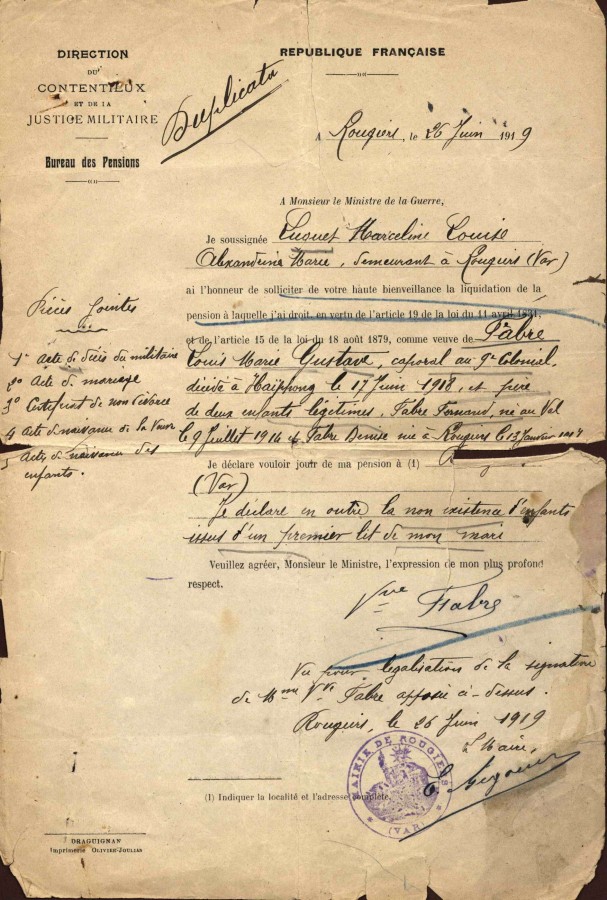 DIRECTION
DU
CONTENTIEUX
ET DE LA
JUSTICE MILITAIRE
Bureau des Pensions
Duplicata
REPUBLIQUE FRANÇAISE
A Rougiers, le 26 Juin 1919
A Monsieur le Ministre de la Guerre,
Je soussignée Marceline Louise
Alexandrine Marie, demeurant à Rougiers (Var)
ai l'honneur de solliciter de votre haute bienveillance la liquidation de la
pension à laquelle j'ai droit, en vertu de l'article 19 de la loi du 11 avril 1831,
et de l'article 15 de la loi du 18 août 1879, comme veuve de Fabre
Louis Marie Gustave, caporal au 9e Colonial,
décédé à Haïphong le 17 Juin 1918, et père
de deux enfants légitimes, Fabre Fernand, né au Val
le 9 Juillet 1914 et Fabre Denise née à Rougiers le 13 Janvier
Je déclare vouloir jouir de ma pension à (1)
(Var)
Je déclare en outre la non existence d'enfants
issus d'un premier lit de mon mari
Veuillez agréer, Monsieur le Ministre, l'expression de mon plus profond
respect.
Vve Fabre
Pièces Jointes
1° Acte de décès du militaire
2° Acte de mariage
3° Certificat de non divorce
4 Acte de naissance de la Veuve
5 Actes de naissance des
enfants.
Vu pour légalisation de la signature
de Mme Vve Fabre apposée ci-dessus.
Rougiers, le 26 Juin 1919
Le Maire,
MAIRIE DE ROUGIERS
(VAR)
(1) Indiquer la localité et l'adresse complète.
DRAGUIGNAN
Imprimerie OLIVIER-JOULIAN